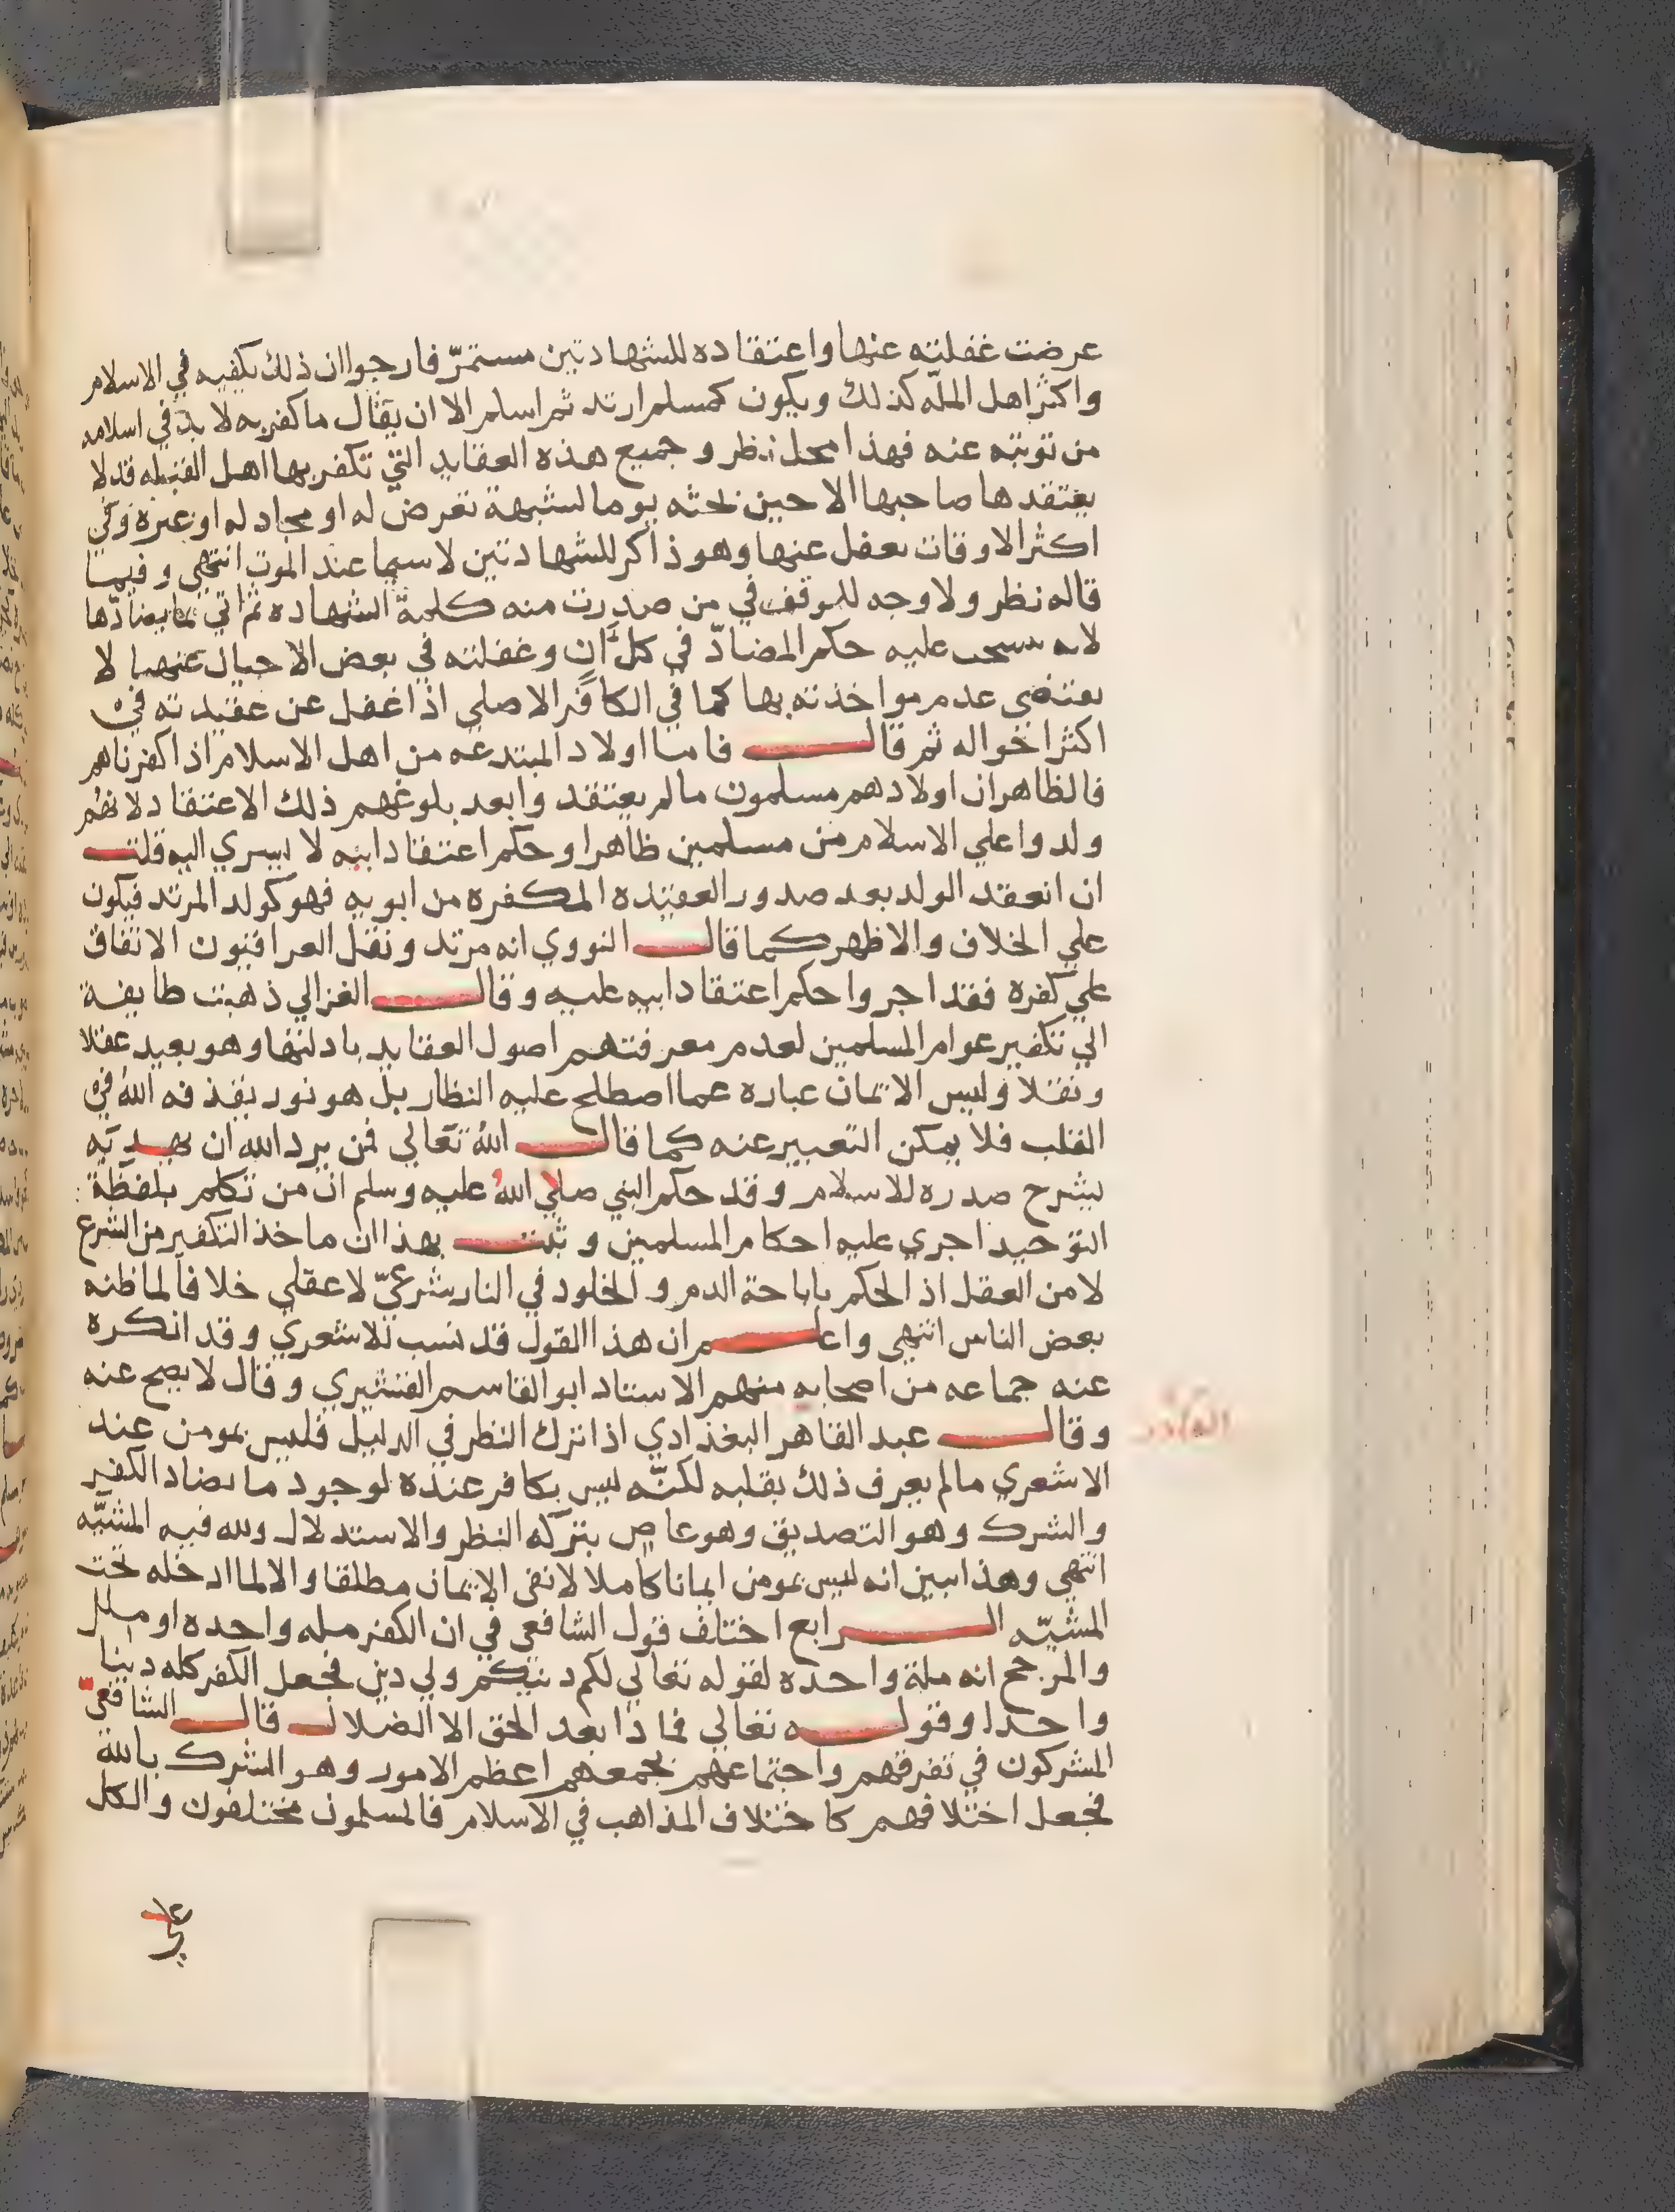 عرضت غفلته عنها واعتقاده للشهادتين مستمرّ فارجوا ان ذلك يكفيه في الاسلام
واكثر اهل الملّه كذلك ويكون كمسلم ارتد ثم اسلم الا ان يقال ما كفر به لا بدّ في اسلامه
من توبته عنه فهذا محل نظر وجميع هذه العقايد التي تكفر بها اهل القبله قد لا
يعتقدها صاحبها الا حين بحثه يوما لشبهة تعرض له او مجادله او غيره وفي
اكثر الاوقات يغفل عنها وهو ذاكر للشهادتين لا سيما عند الموت انتهي وفيما
قاله نظر ولا وجه للوقف في من صدرت منه كلمة الشهاده ثم اتي بما يضادّها
لانه ينسحب عليه حكم المضادّ في كل آن وغفلته في بعض الاحيال عنها لا
يقتضي عدم مواخذته بها كما في الكافر الاصلي اذا غفل عن عقيدته في
اكثر احواله ثم قال فاما اولاد المبتدعه من اهل الاسلام اذا كفرناهم
فالظاهر ان اولادهم مسلمون ما لم يعتقدوا بعد بلوغهم ذلك الاعتقاد لانهم
ولدوا علي الاسلام من مسلمين ظاهرا وحكم اعتقاد ابيه لا يسري اليه قلت
ان انعقد الولد بعد صدور العقيده المكفره من ابويه فهو كولد المرتد فيكون
علي الخلاف والاظهر كما قال النووي انه مرتد ونقل العراقيون الاتفاق
علي كفره فقد اجروا حكم اعتقاد ابيه عليه وقال الغزالي ذهبت طايفة
الي تكفير عوام المسلمين لعدم معرفتهم اصول العقايد بادلتها وهو بعيد عقلا
ونقلا وليس الايمان عباره عما اصطلح عليه النظار بل هو نور يقذفه الله في
القلب فلا يمكن التعبير عنه كما قال الله تعالي فمن يرد الله ان يهديه
يشرح صدره للاسلام وقد حكم النبي صلي الله عليه وسلم ان من تكلم بلفظة
التوحيد اجري عليه احكام المسلمين وثبت بهذا ان ماخذ التكفير من الشرع
لا من العقل اذ الحكم باباحة الدم والخلود في النار شرعيّ لا عقلي خلافا لما ظنه
بعض الناس انتهي واعلم ان هذا القول قد نسب للاشعري وقد انكره
عنه جماعه من اصحابه منهم الاستاد ابو القاسم القشيري وقال لا يصح عنه
وقال عبد القاهر البغدادي اذا ترك النظر في الدليل فليس بمومن عند
الاشعري ما لم يعرف ذلك بقلبه لكنّه ليس بكافر عنده لوجود ما يضاد الكفر
والشرك وهو التصديق وهو عاص بتركه النظر والاستدلال ولله فيه المشيّه
انتهي وهذا يبين انه ليس بمومن ايمانا كاملا لا نفي الايمان مطلقا والا لما ادخله تحت
المشيّه الرابع اختلف قول الشافعي في ان الكفر مله واحده او ملل
والمرجح انه ملة واحده لقوله تعالي لكم دينكم ولي دين فجعل الكفر كله دينا
واحدا وقوله تعالي فماذا بعد الحق الا الضلال قال الشافعيّ
المشركون في تفرقهم واجتماعهم يجمعهم اعظم الامور وهو الشرك بالله
فجعل اختلافهم كاختلاف المذاهب في الاسلام فالمسلمون مختلفون والكل
علي